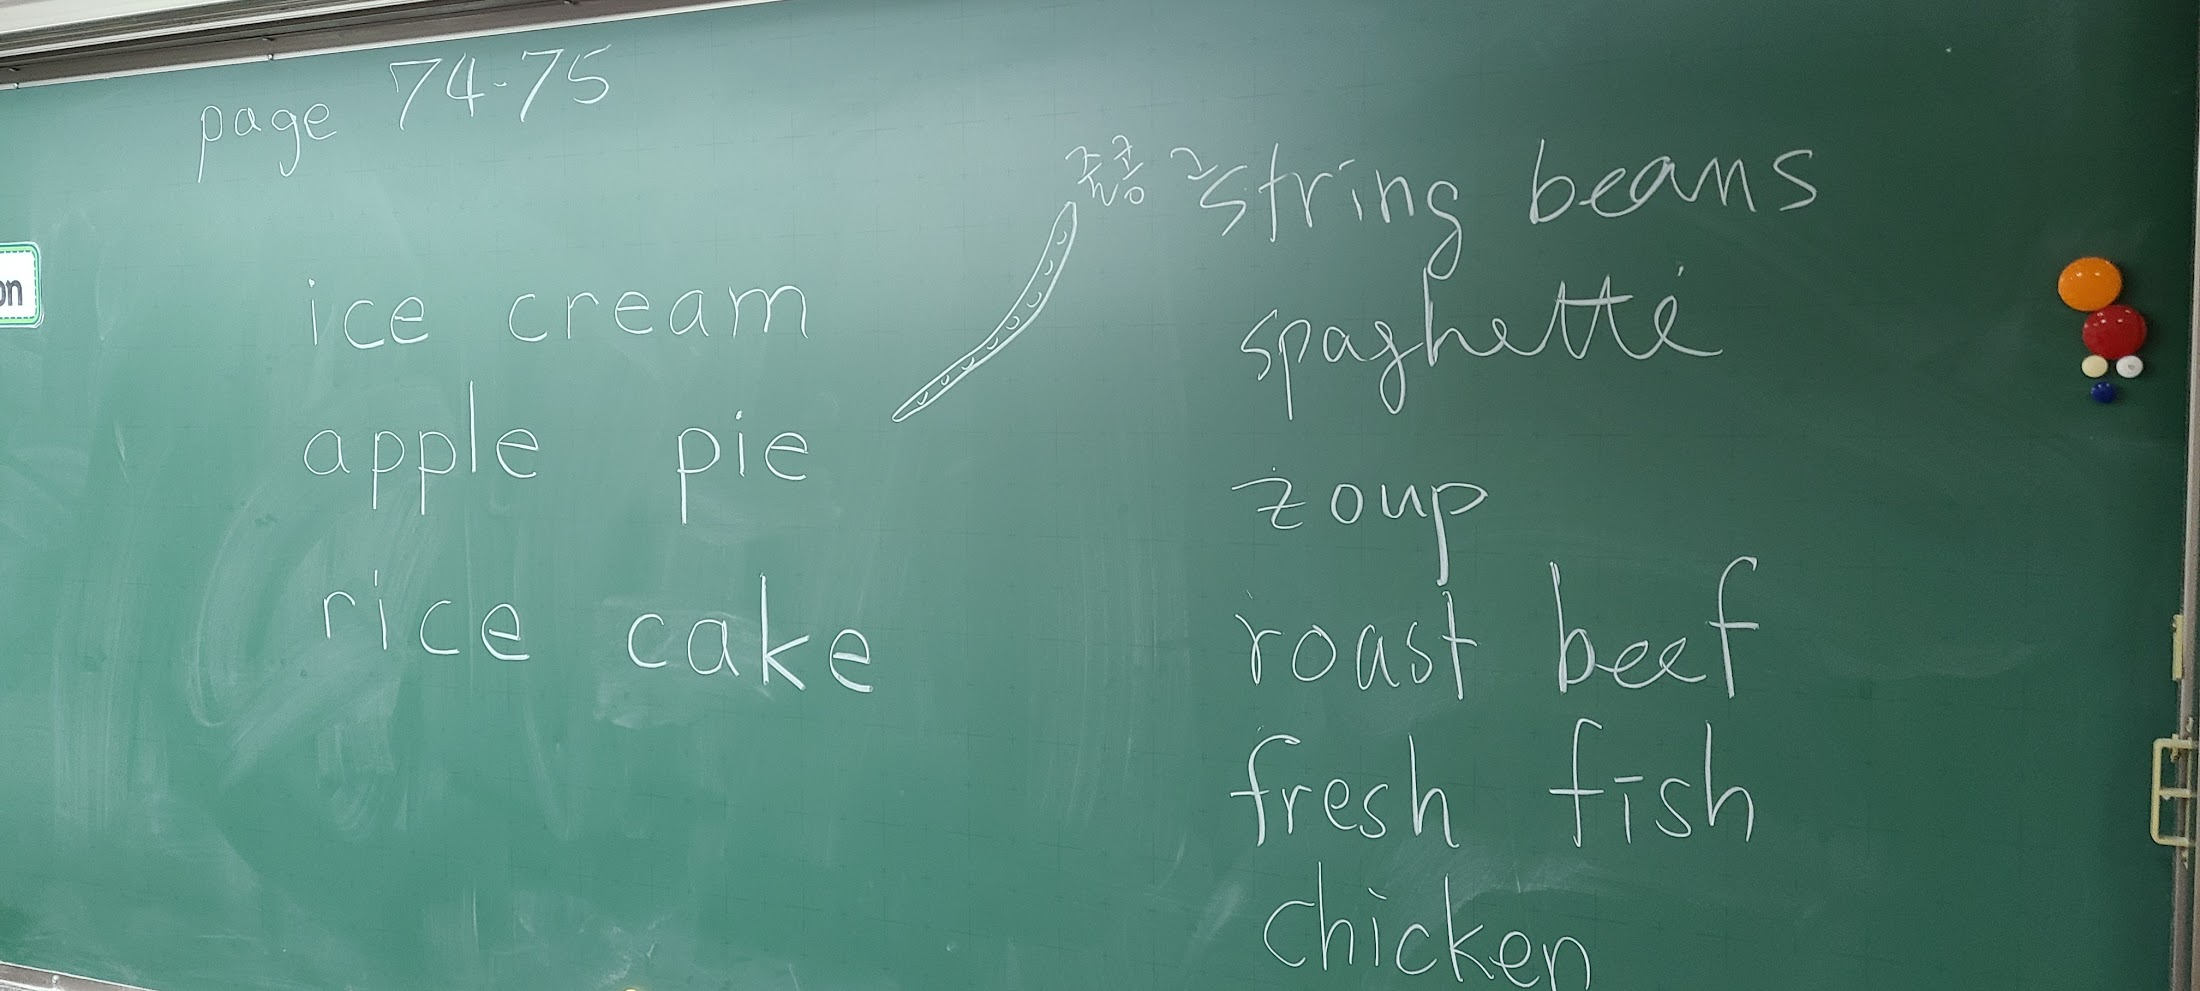 page 74-75
on
ice cream
apple pie
rice cake
string beans
spaghetti
zoup
roast beef
fresh fish
chicken